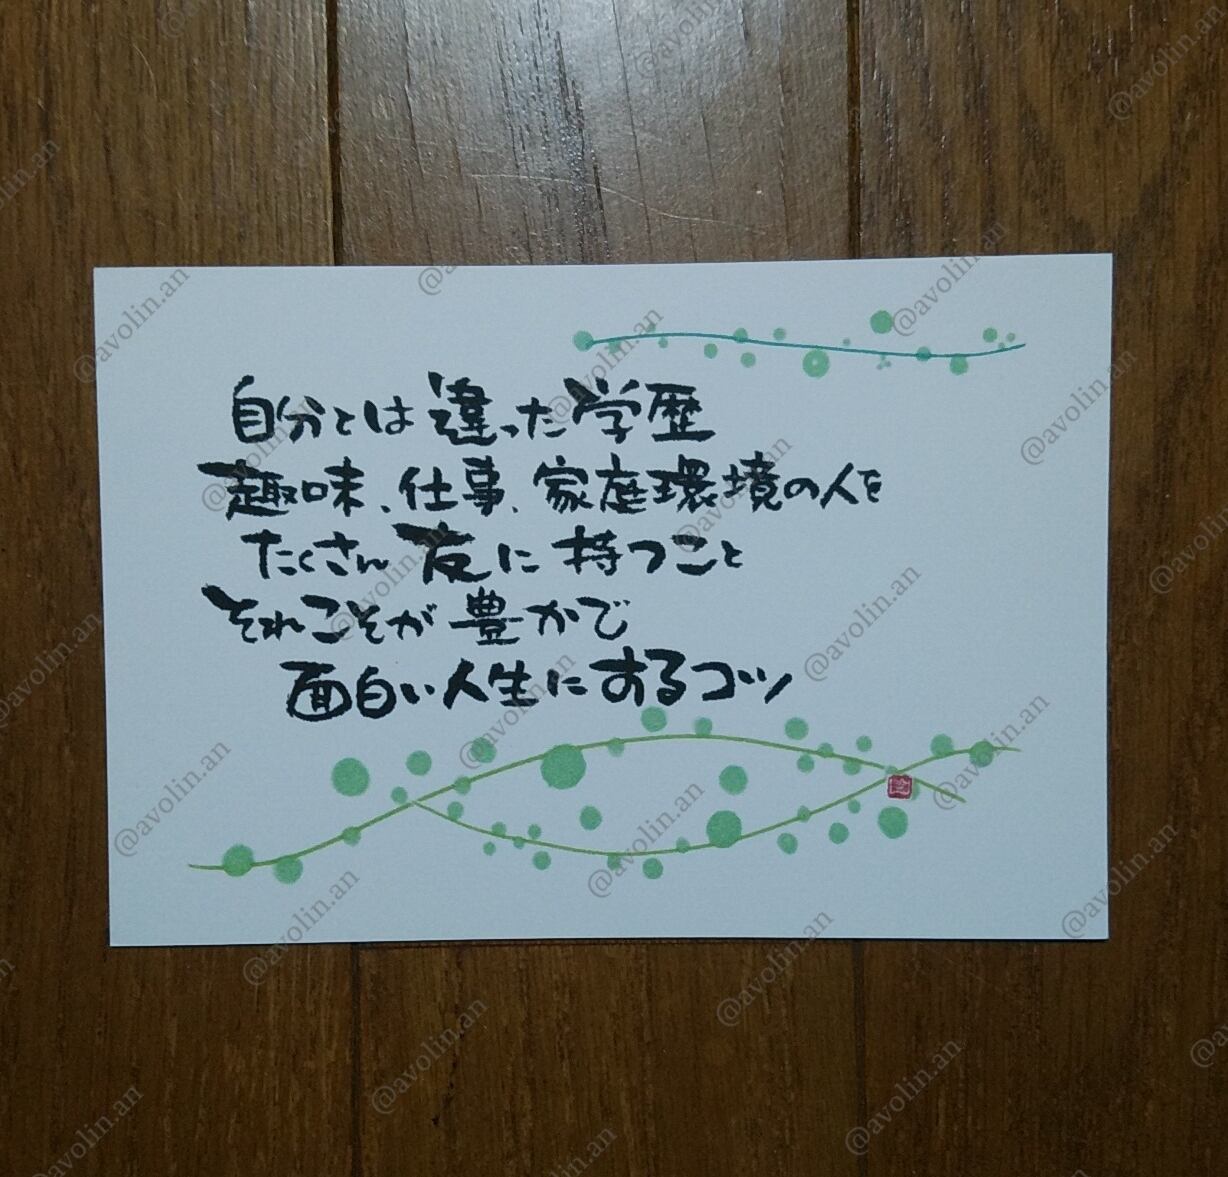 自分とは違った学歴
趣味、仕事、家庭環境の人を
たくさん友に持つこと
それこそが豊かで
面白い人生にするコツ
@avolin.an